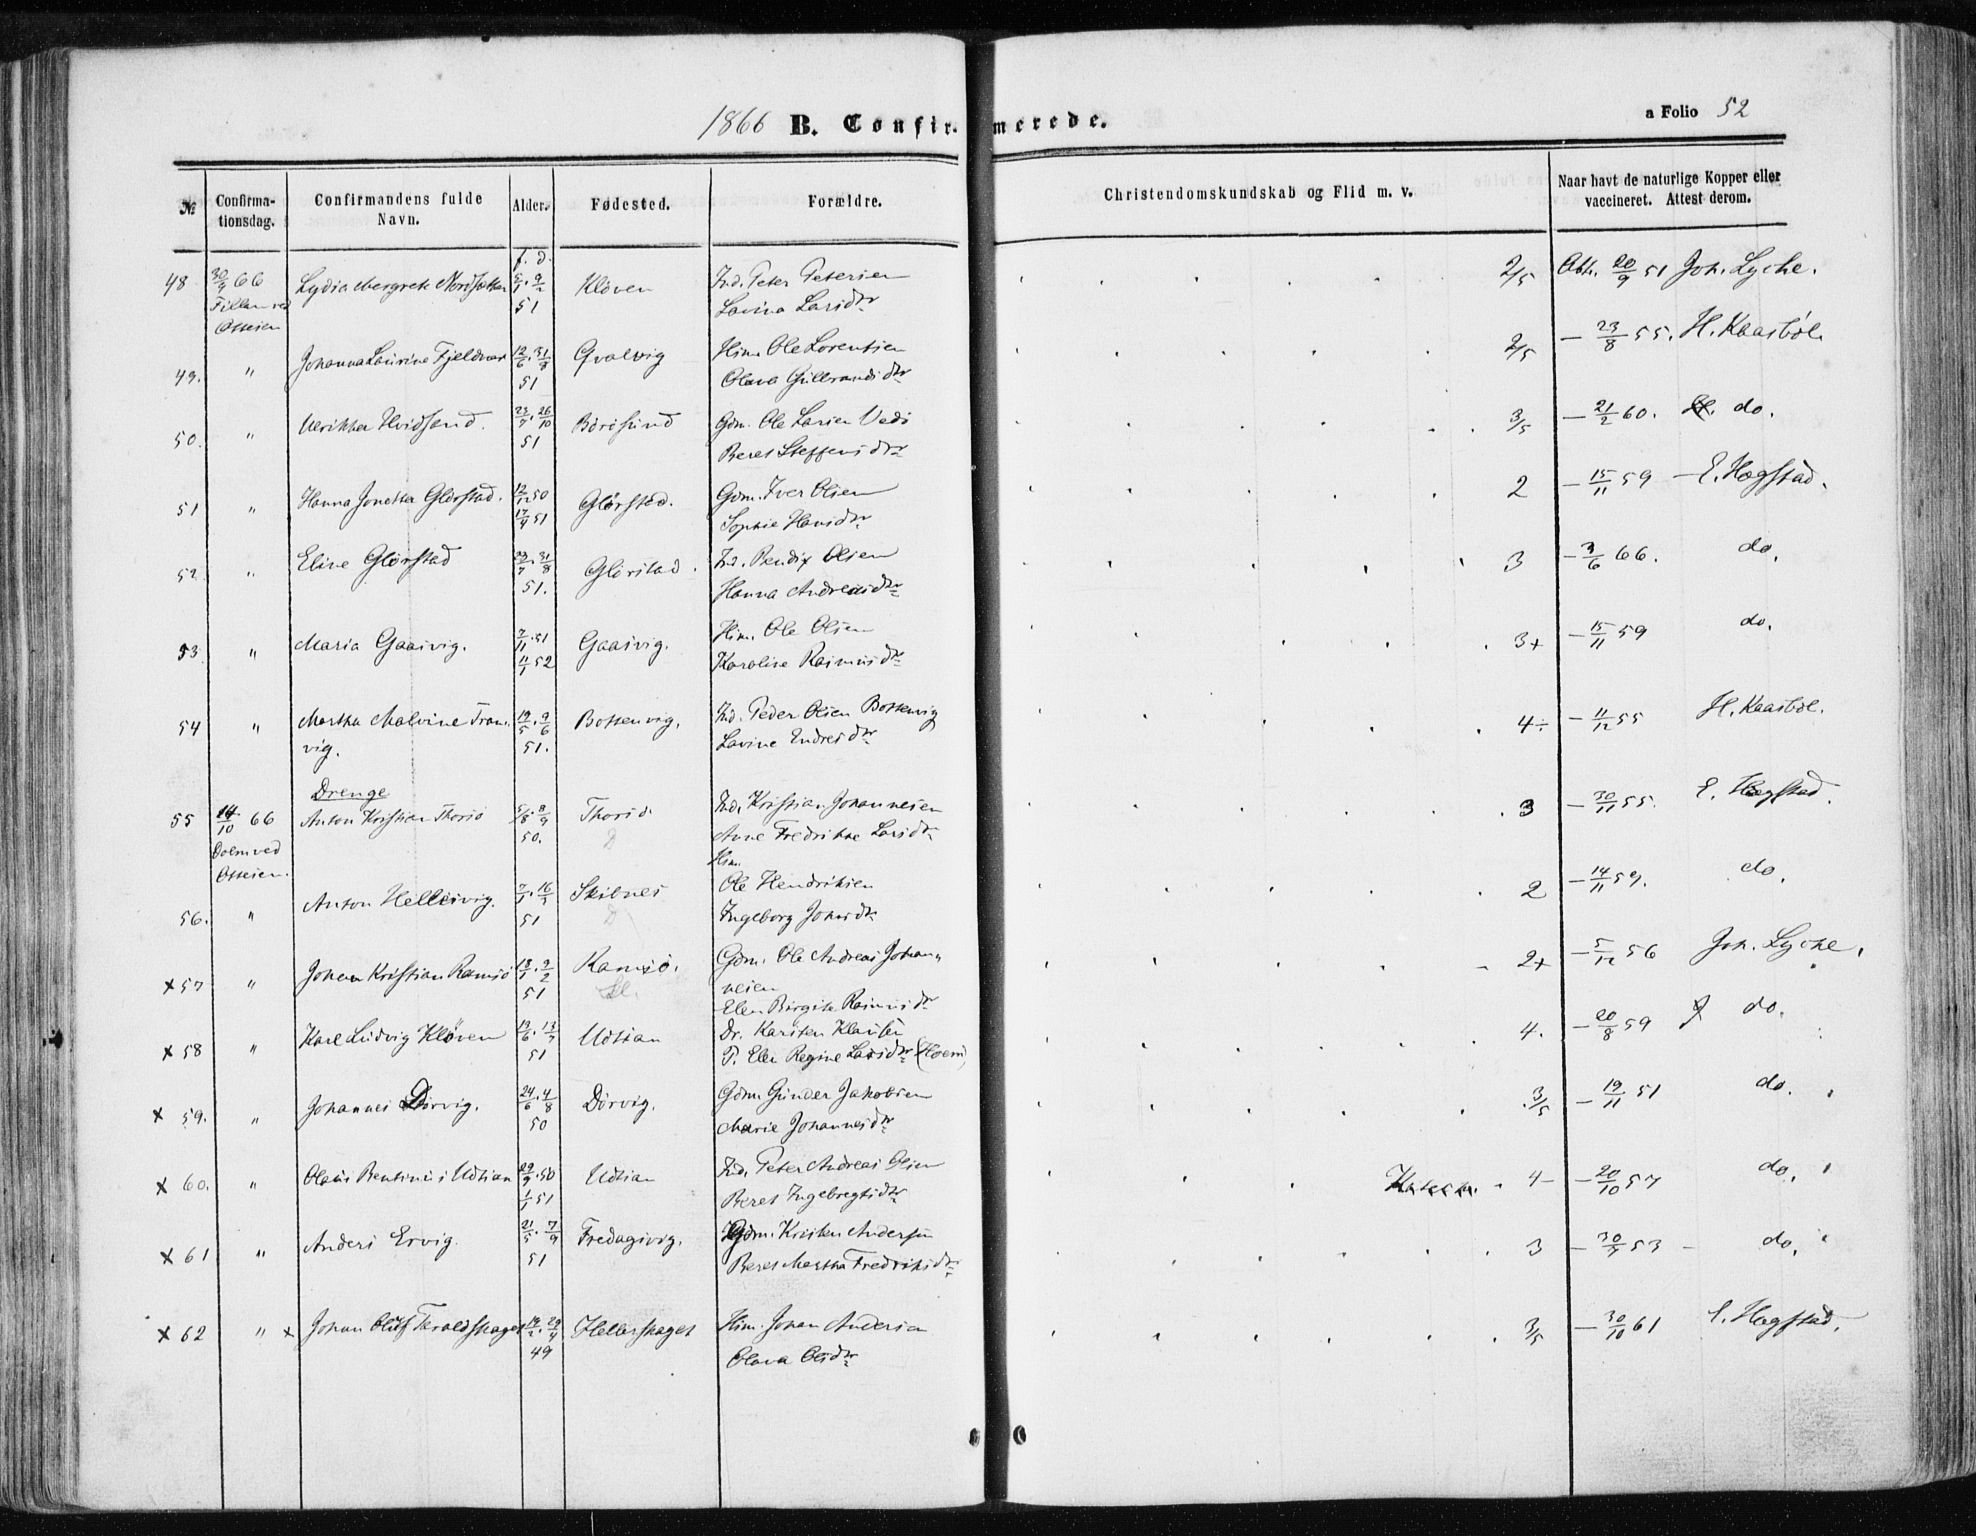 1866 B. Confirmerede. a Folio 52
№ Confirmationsdag. Confirmandens fulde Navn. Alder. Fødested. Forældre. Christendomskundskab og Flid m. v. Naar havt de naturlige Kopper eller vaccineret. Attest derom.
f. d.
48 30/9 66 Lydia Margrete Nordsætter 5/1. 9/2 Kløven Ind. Peter Petersen 2/5 Ath. 20/9 51 Joh. Lyche.
Fillan ved 51 Lavina Larsdtr
Otteien
49. " Johanna Laurine Fjeldvær 12/6. 31/8 Qvalvig Him. Ole Lorentsen 2/5 — 23/8 55. H. Kaasbøl.
51 Olava Gulbrandsdtr
50. " Ulrikka Hvidsand. 23/7. 26/10 Børisund Gdm. Ole Larsen Veds 3/5 — 21/2 60. do.
51 Beret Steffensdtr
51 " Hanna Jonetta Glørstad. 12/12 50 Glørstad. Gdm. Iver Olsen 2 — 15/11 59 — E. Hegstad.
17/4 51 Sophie Hansdtr
52. " Eline Glørstad 23/7. 31/8 Glørstad. Ind. Bendix Olsen 3 — 3/6 66. do.
51. Hanna Andreasdtr
53 " Maria Gaasvig. 7/11 51 Gaasvig. Him. Ole Olsen 3+ — 15/11 59 do.
11/1 52 Karoline Rasmusdtr
54 " Martha Malvine Tranvig. 19/5. 9/6 Bottenvig. Ind. Peder Olsen Bottenvig 4÷ — 11/12 55 H. Kaasbøl.
51. Lavine Endresdtr
Drenge
55 14/10 66 Anton Kristian Thorsø 5/8. 8/9 Thorsø. Ind. Kristian Johannesen 3 — 30/11 55. E. Hegstad.
Dolm ved 50. D Anne Fredrikke Larsdtr
Otteien.
56. " Anton Hellesvig. 7/1. 16/3 Skibnes Him. Ole Hendriksen 2 — 14/11 59. do.
51 D Ingeborg Johnsdtr
x 57 " Johan Kristian Ramsø 18/1. 9/2 Ramsø. Gdm. Ole Andreas Johannesen 2+ — 5/12 56 Joh. Lyche.
51 Elen Birgitte Rasmusdtr
x 58 " Karl Ludvig Kløven 13/6. 13/7 Udtian Dr. Karsten Klausen 4. — 20/8 59 do.
51 P. Elen Regine Larsdtr (Hoem)
x 59. " Johannes Dørvig. 24/6. 4/8 Dørvig. Gdm. Gunder Jakobsen 3/5 — 19/11 51 do.
50 Marie Johannesdtr
x 60. " Olaus Bentinus Udtian 29/9. 50 Udtian Ind. Peter Andreas Olsen 4— — 20/10 57 do.
1/1 51 Beret Ingebregtsdtr
x 61 " Anders Ervig. 21/5. 7/9 Fredagsvig. Gdm. Kristen Andersen 3 — 30/9 53 — do.
51 Beret Martha Fredriksdtr
x 62 " x Johan Oluf Taraldskaget 19/2. 29/4 Hellerskaget Him. Johan Andersen 3/5 — 30/10 61 E. Hegstad.
49 Olava Olsdtr